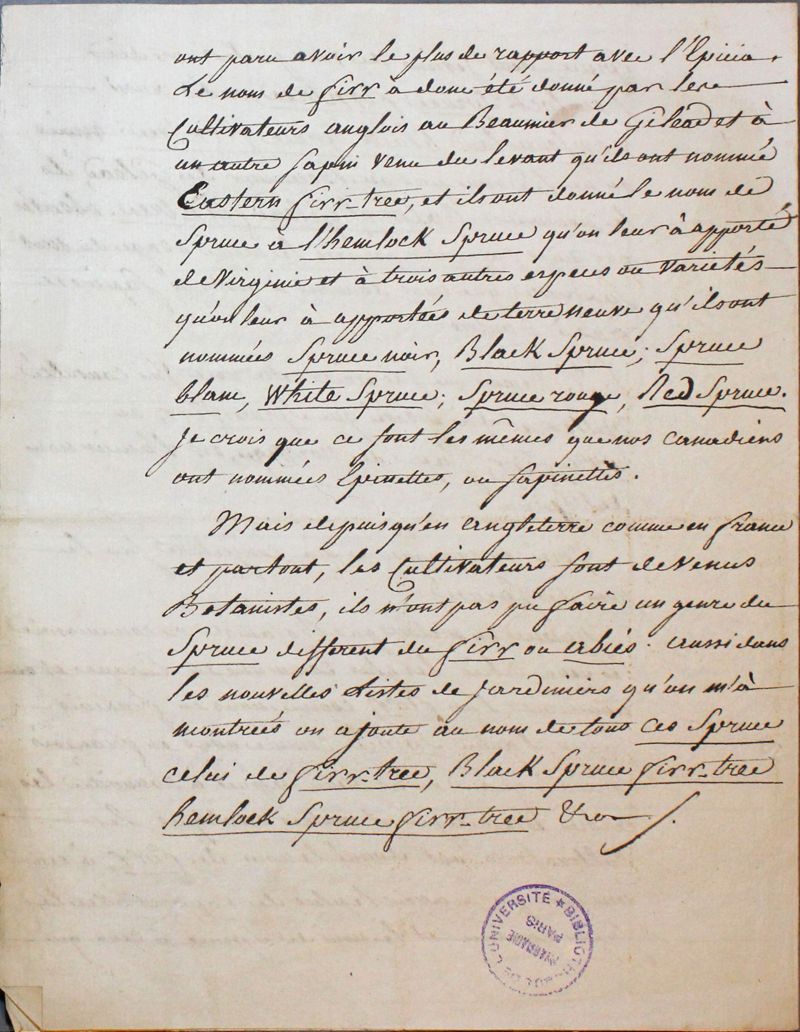 ont paru avoir le plus de rapport avec l'Epicia.
Le nom de firr à donc été donné par les
Cultivateurs anglois au Beaumier de Gilead et à
un autre sapin venu du levant qu'ils ont nommé
Eastern firr-tree, et ils ont donné le nom de
Spruce à l'hemlock Spruce qu'on leur à apporté
de Virginie et à trois autres especes ou variétés
qu'on leur à apportées de terre neuve qu'ils ont
nommées Spruce noir, Black Spruce; Spruce
blanc, White Spruce; Spruce rouge, Red Spruce.
Je crois que ce sont les mêmes que nos canadiens
ont nommées Epinettes, ou sapinettes.
Mais depuis qu'en angleterre comme en france
et partout, les Cultivateurs sont devenus
Botanistes, ils n'ont pas pu faire un genre du
Spruce different du firr ou abiés. aussi dans
les nouvelles Listes de jardiniers qu'on m'à
montrées on ajoute au nom de tous ces Spruce
celui de firr-tree, Black Spruce firr-tree
hemlock Spruce firr-tree &
UNIVERSITÉ ★ BIBLIOTH
PHARMACIE
PARIS